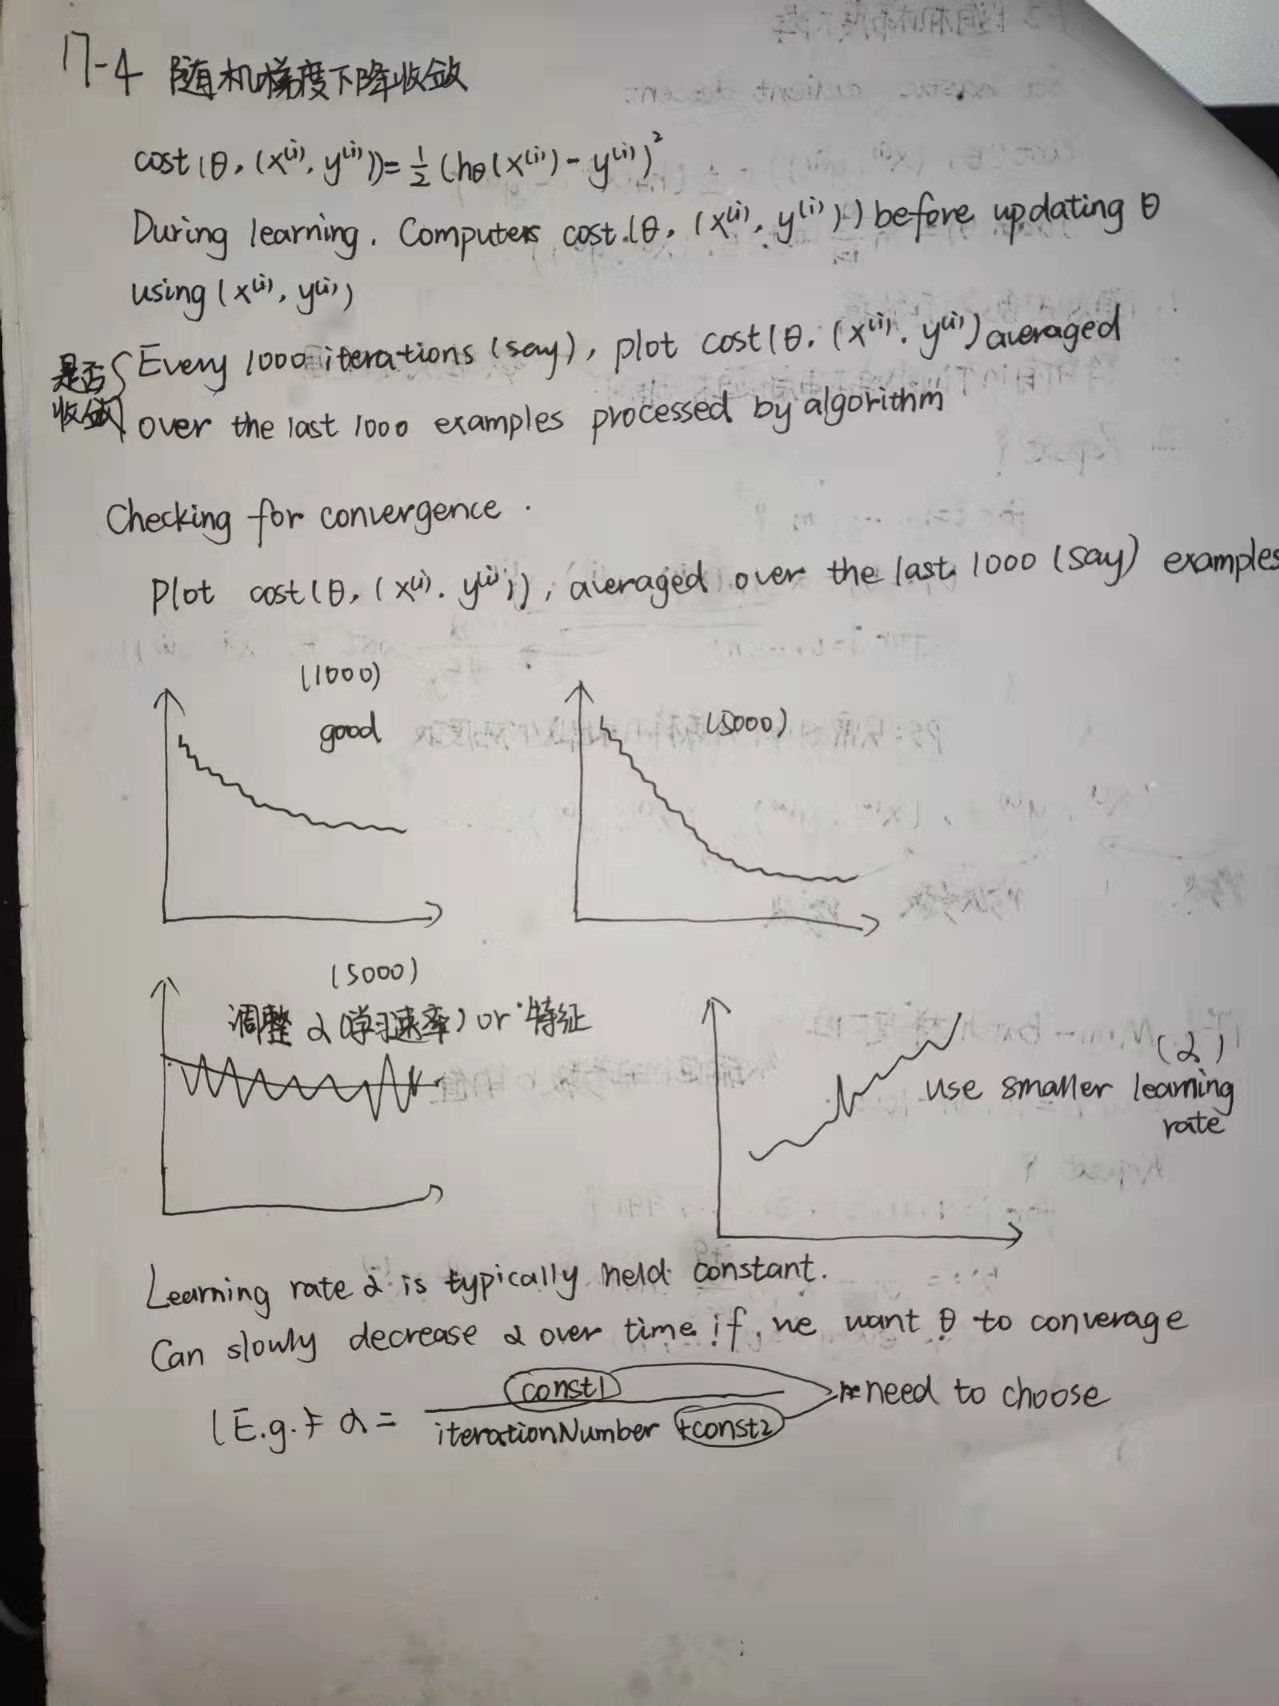 17-4 随机梯度下降收敛
cost(θ, (x⁽ⁱ⁾, y⁽ⁱ⁾))=½(hθ(x⁽ⁱ⁾)-y⁽ⁱ⁾)²
During learning. Computers cost.(θ, (x⁽ⁱ⁾, y⁽ⁱ⁾)) before updating θ
using (x⁽ⁱ⁾, y⁽ⁱ⁾)
是否
收敛
Every 1000 iterations (say), plot cost(θ, (x⁽ⁱ⁾, y⁽ⁱ⁾) averaged
over the last 1000 examples processed by algorithm
Checking for convergence.
Plot cost(θ, (x⁽ⁱ⁾. y⁽ⁱ⁾)), averaged over the last 1000 (say) examples
(1000)
good
(5000)
(5000)
调整 α (学习速率) or 特征
(α)
use smaller learning
rate
Learning rate α is typically held constant.
Can slowly decrease α over time if we want θ to converage
(E.g.) α = const1 / iterationNumber + const2 need to choose